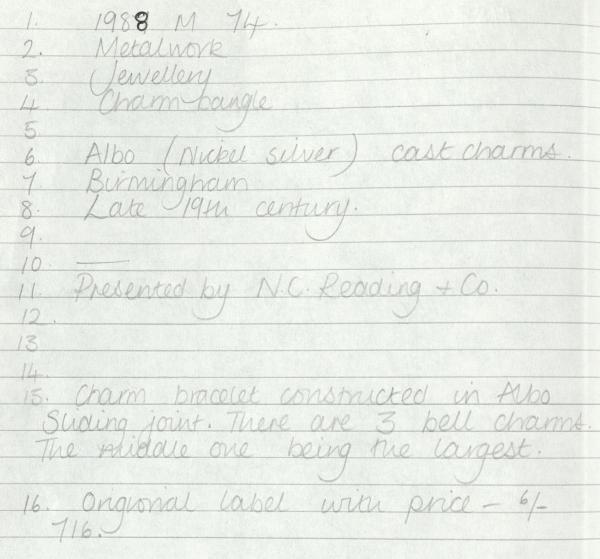 1. 1988 M 74.
2. Metalwork
3. Jewellery
4 Charm bangle
5
6 Albo (Nickel silver) cast charms.
7 Birmingham
8. Late 19th century.
9.
10. —
11 Presented by N.C. Reading + Co.
12.
13
14.
15. Charm bracelet constructed in Albo
Sliding joint. There are 3 bell charms.
The middle one being the largest.
16. Origional label with price - 6/-
716.